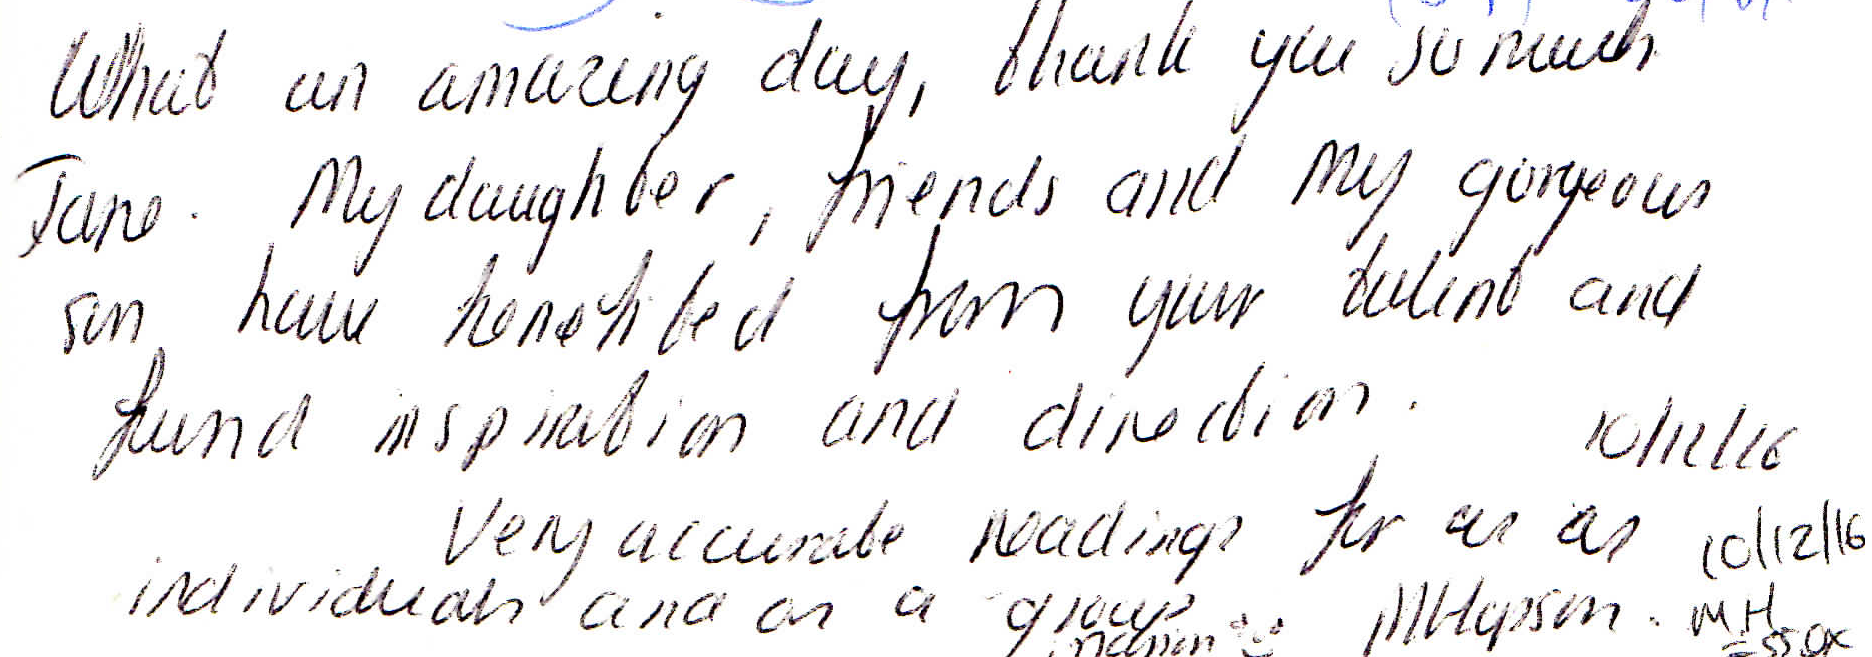 What an amazing day, thank you so much
Jane. My daughter, friends and my gorgeous
son have benefited from your talent and
found inspiration and direction.
10/12/16
Very accurate readings for us as
10/12/16
individuals and as a group
MH